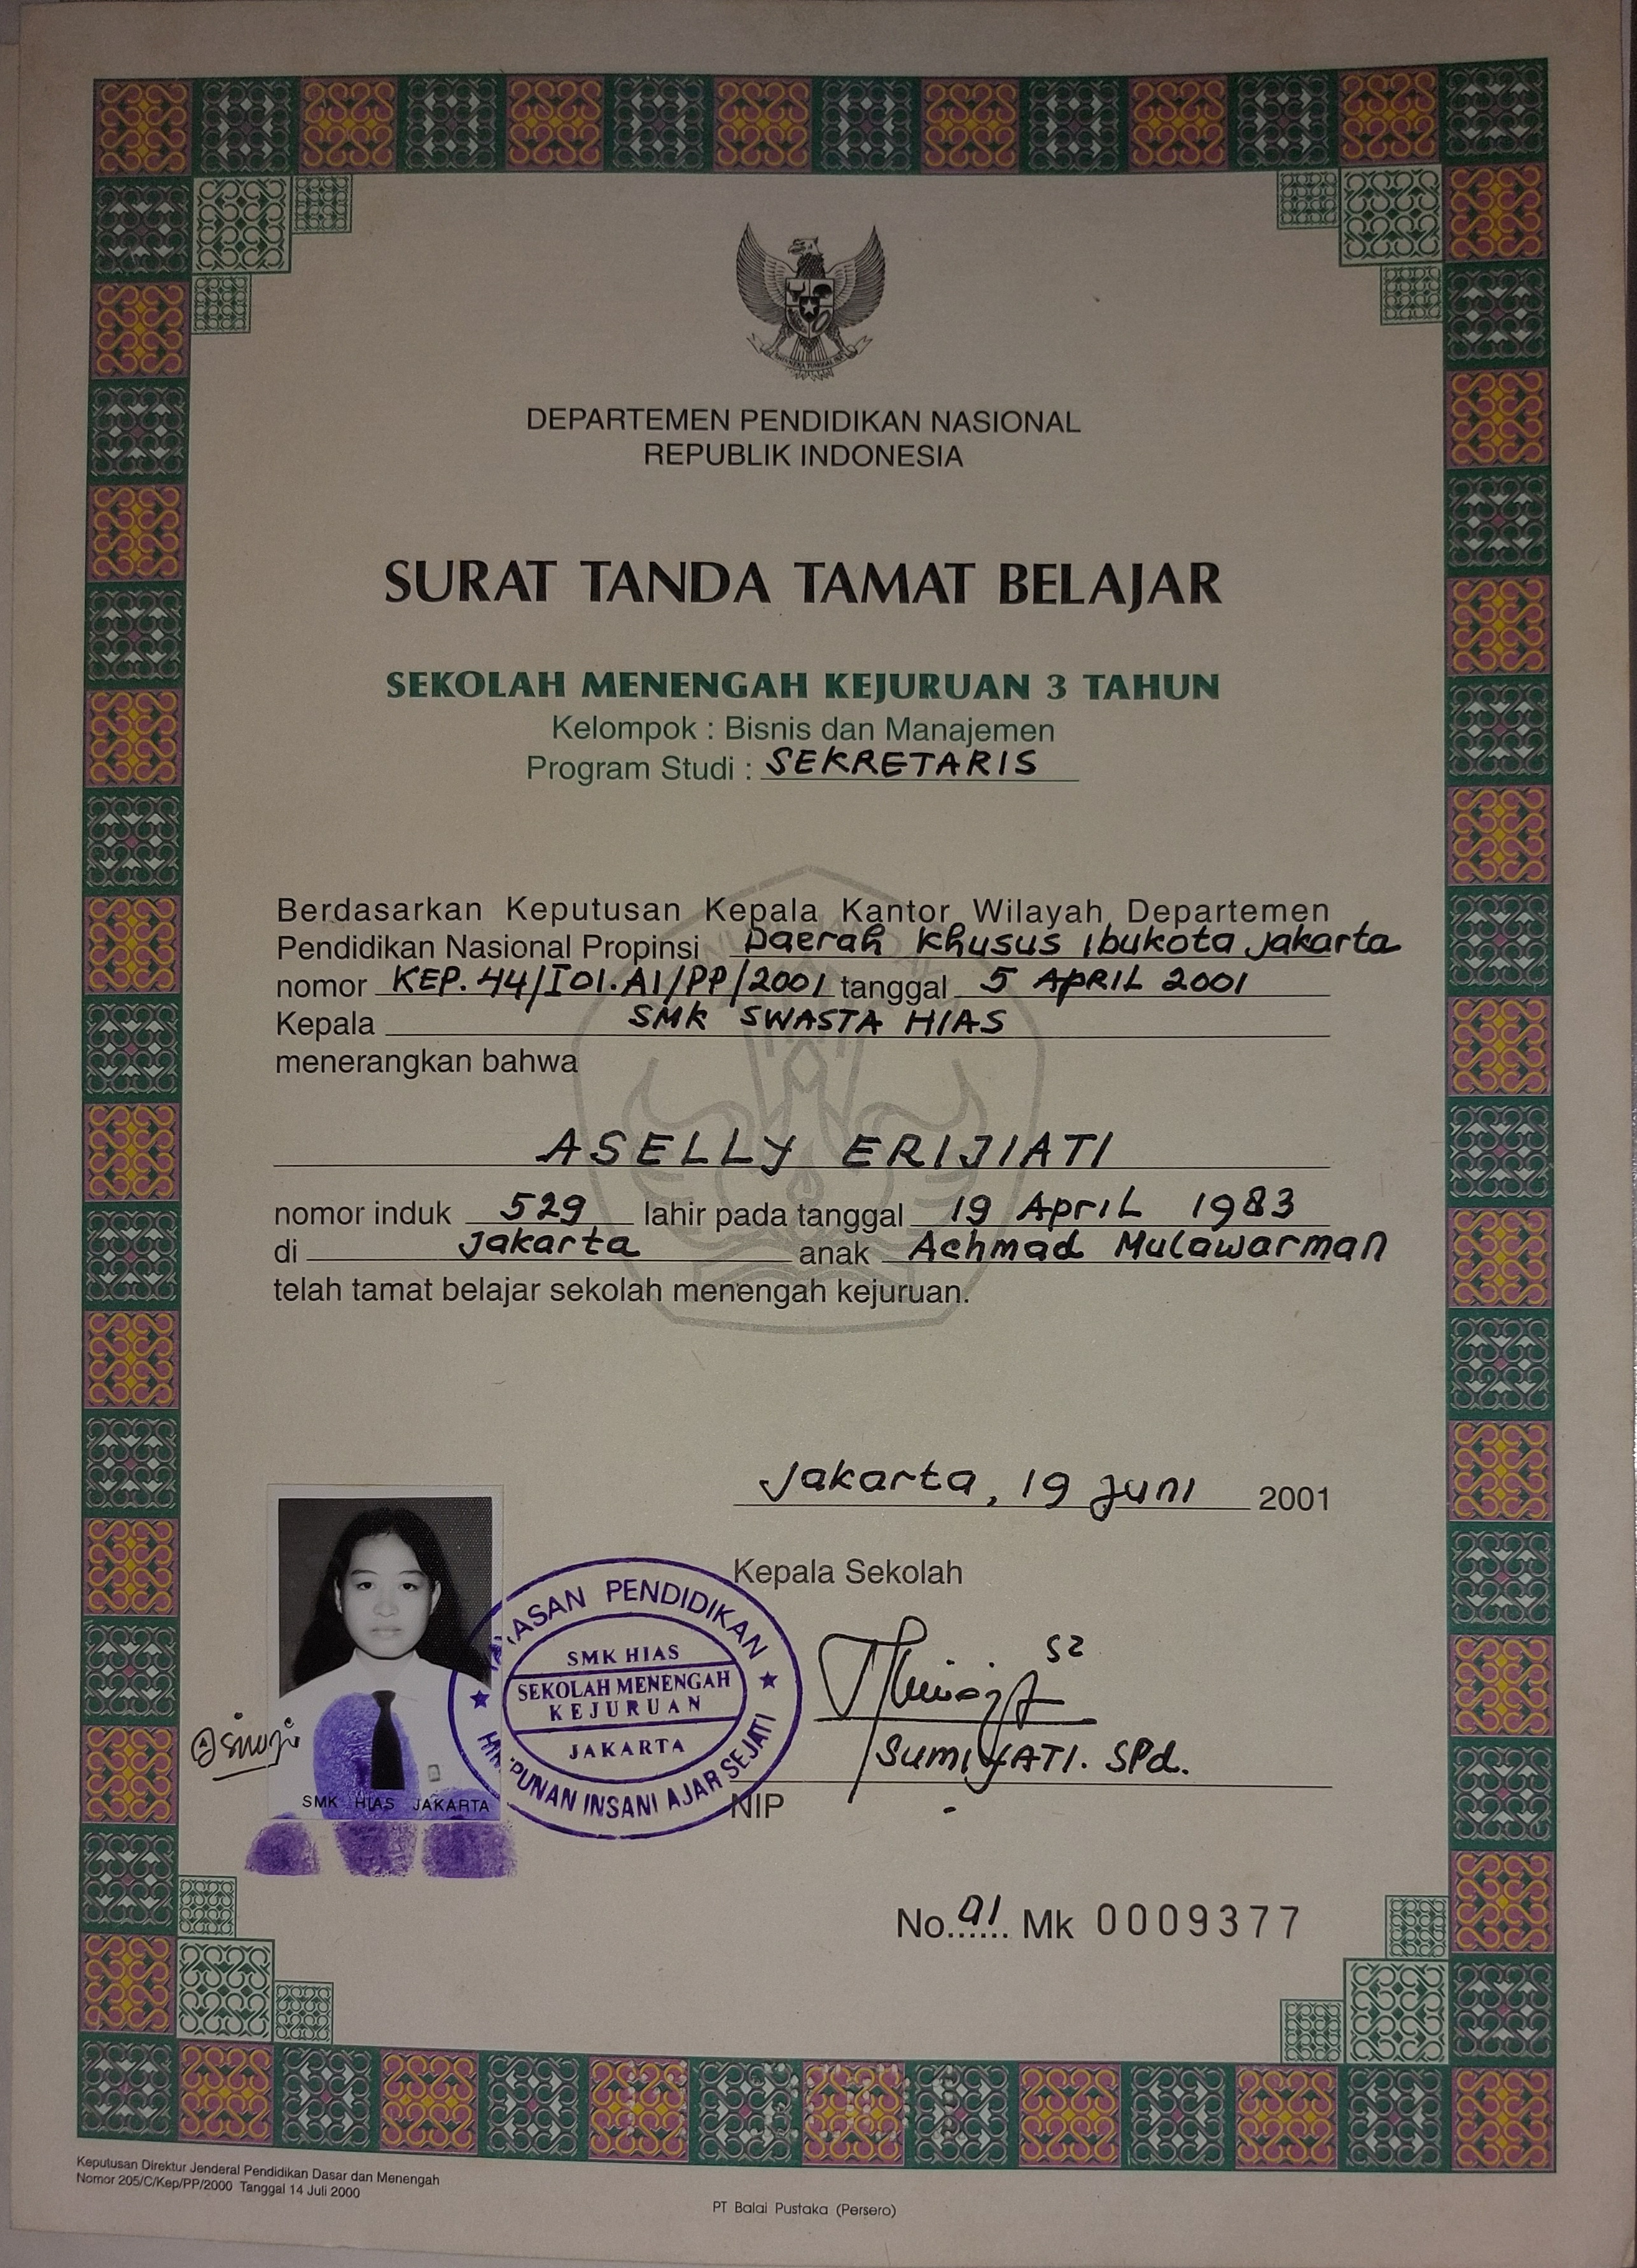 DEPARTEMEN PENDIDIKAN NASIONAL
REPUBLIK INDONESIA
SURAT TANDA TAMAT BELAJAR
SEKOLAH MENENGAH KEJURUAN 3 TAHUN
Kelompok : Bisnis dan Manajemen
Program Studi : SEKRETARIS
Berdasarkan Keputusan Kepala Kantor Wilayah Departemen
Pendidikan Nasional Propinsi Daerah Khusus Ibukota Jakarta
nomor KEP.44/I01.A1/PP/2001 tanggal 5 APRIL 2001
Kepala SMK SWASTA HIAS
menerangkan bahwa
ASELLY ERIJIATI
nomor induk 529 lahir pada tanggal 19 April 1983
di Jakarta anak Achmad Mulawarman
telah tamat belajar sekolah menengah kejuruan.
Jakarta, 19 Juni 2001
Kepala Sekolah
YAYASAN PENDIDIKAN
SMK HIAS
SEKOLAH MENENGAH
KEJURUAN
JAKARTA
HIMPUNAN INSANI AJAR SEJATI
SUMIYATI. SPd.
NIP -
SMK HIAS JAKARTA
No. 01 Mk 0009377
Keputusan Direktur Jenderal Pendidikan Dasar dan Menengah
Nomor 205/C/Kep/PP/2000 Tanggal 14 Juli 2000
PT Balai Pustaka (Persero)